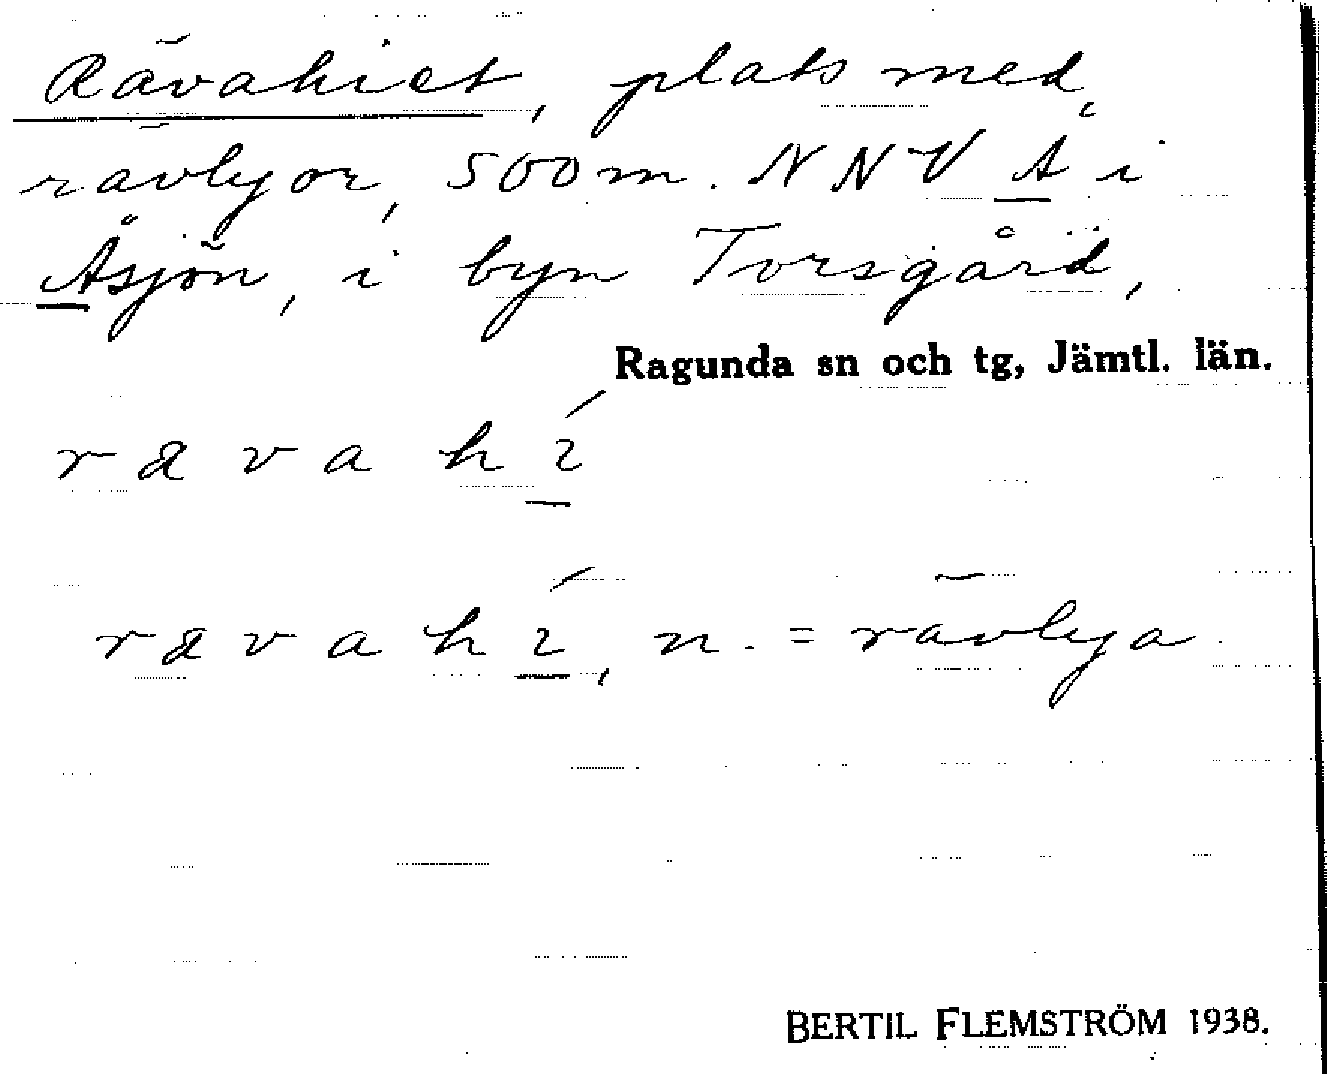 Rävahiet, plats med
rävlyor, 500 m. NNV Å i
Åsjön, i byn Torsgård,
Ragunda sn och tg, Jämtl. län.
r æ v a h í
r æ v a h í, n. = rävlya
BERTIL FLEMSTRÖM 1938.